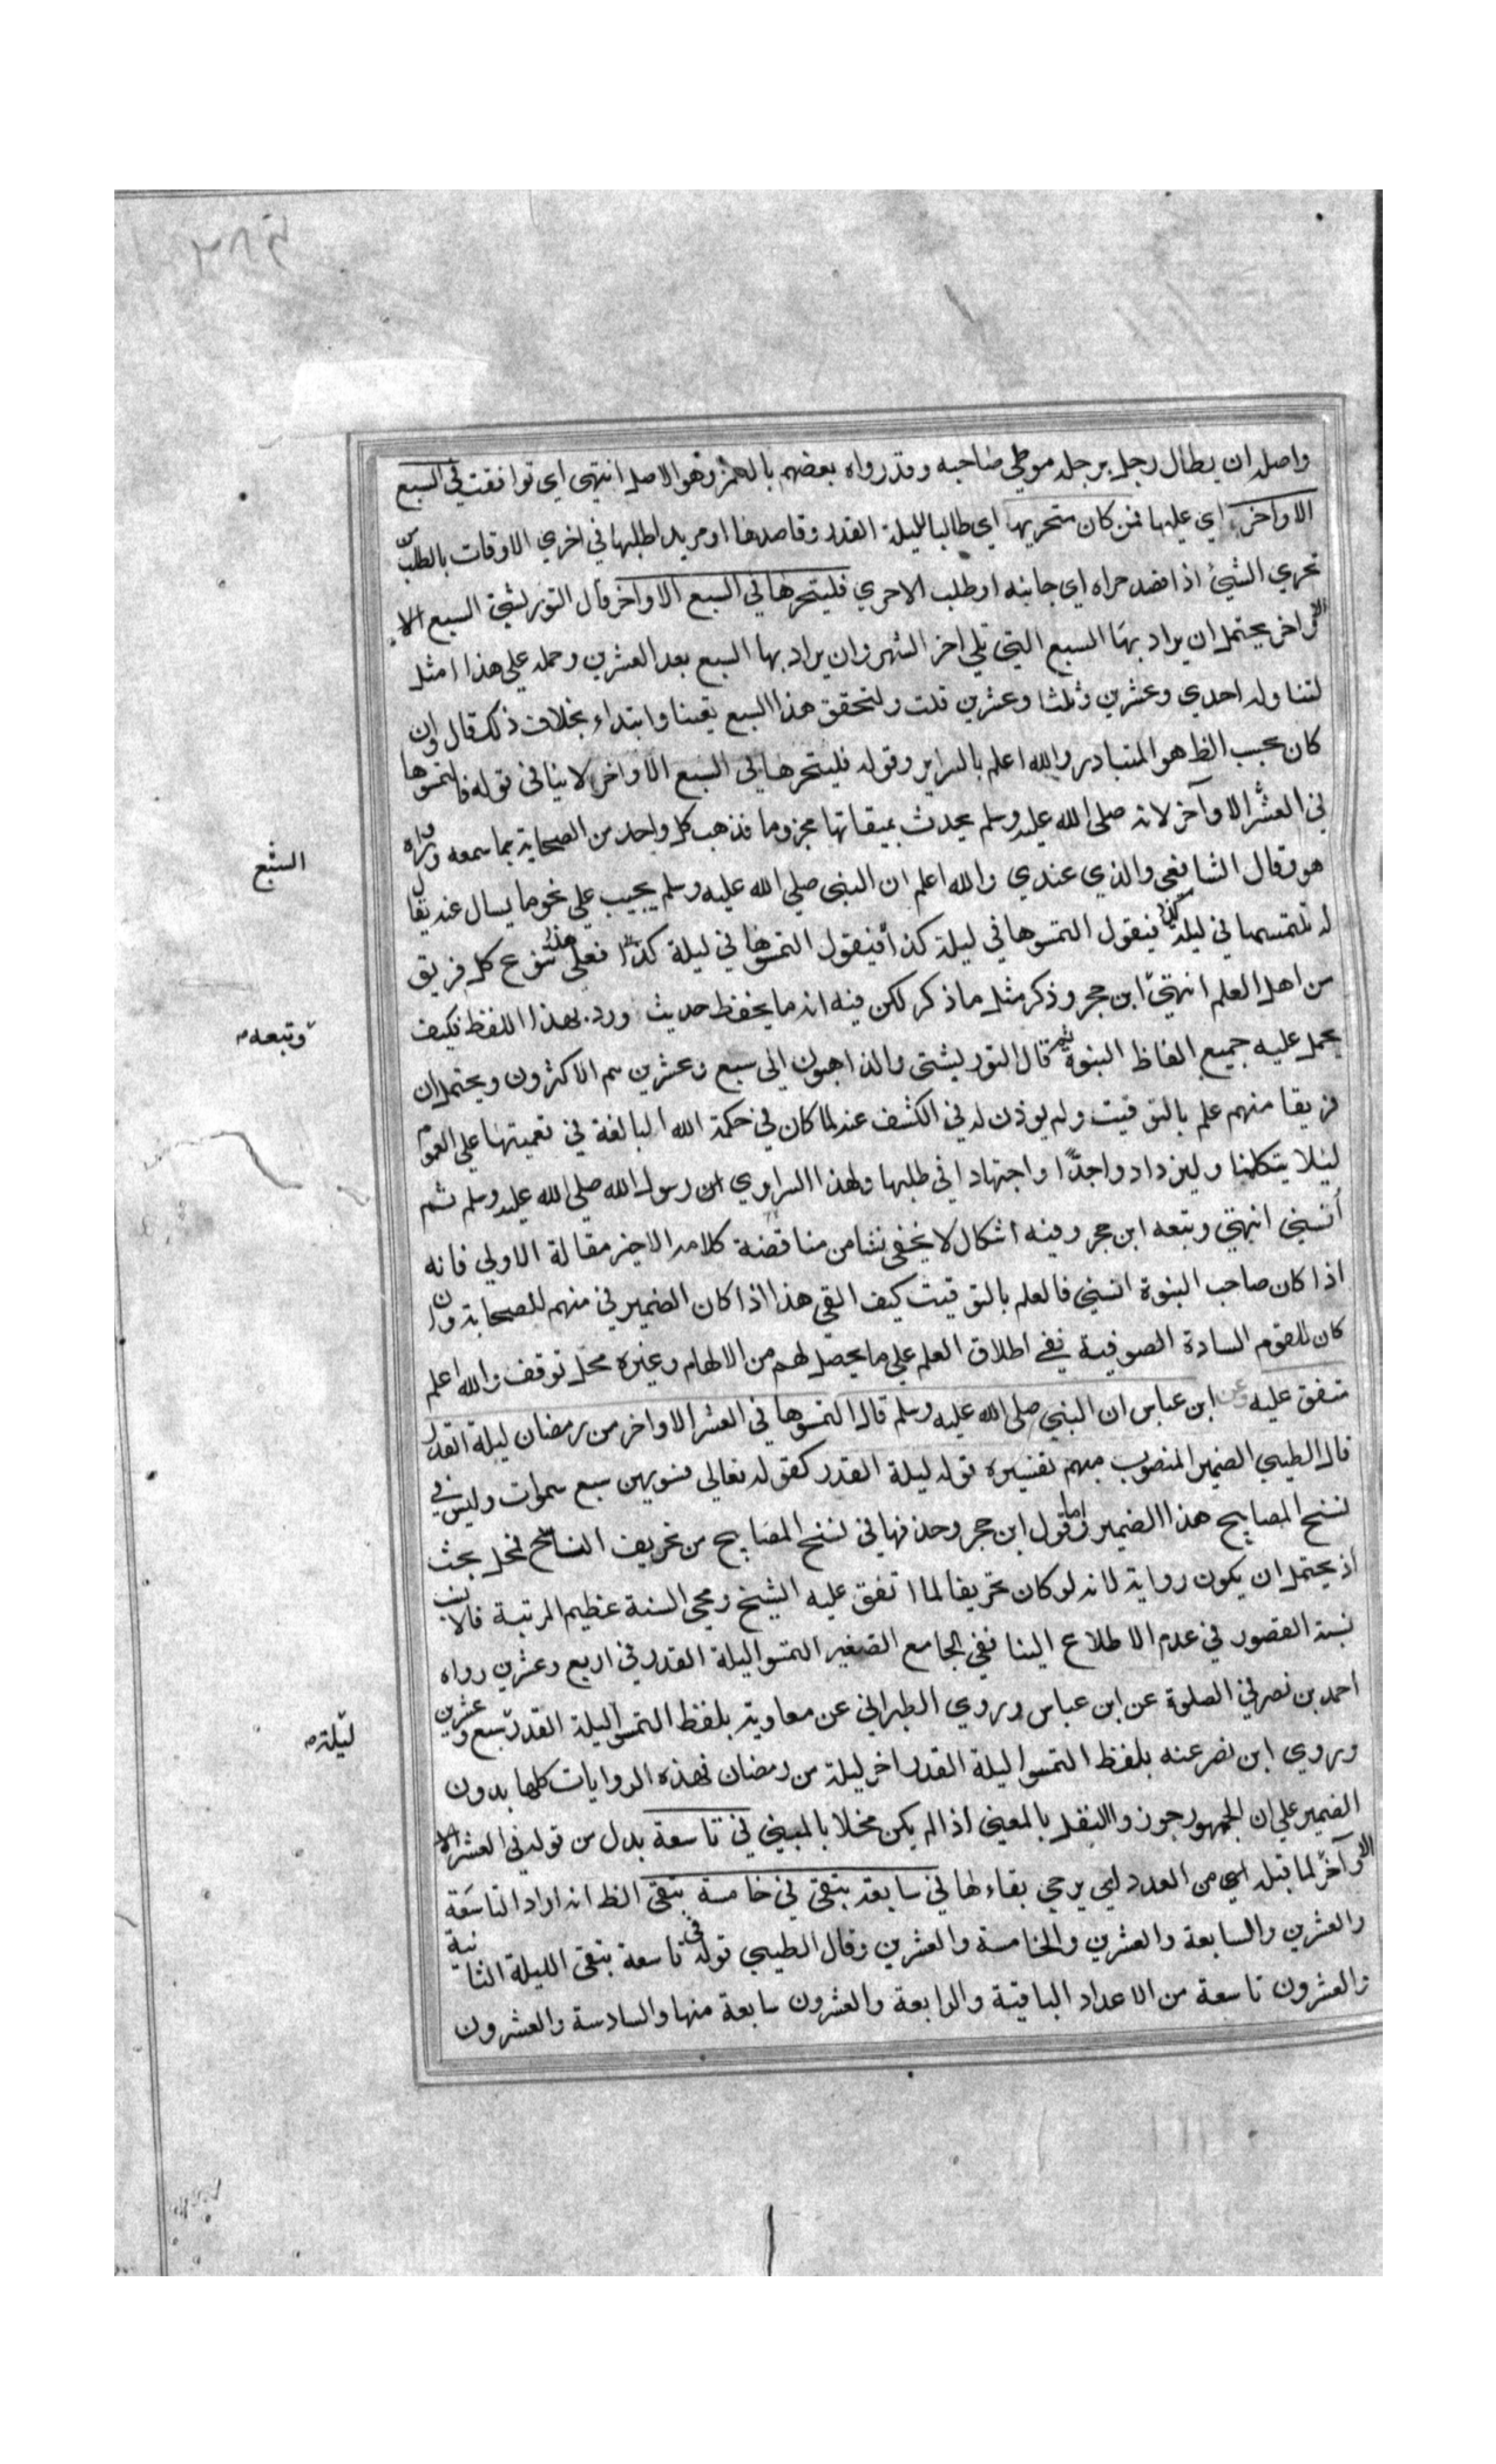 واصله ان يطأ الرجل برجله موطئ صاحبه وقد رواه بعضهم بالهمز وهو الاصل انتهى اي توافقت في السبع
الاواخر اي عليها فمن كان متحريها اي طالبا لليلة القدر وقاصدها او مريدا طلبها في اخري الاوقات بالطلب من
تحري الشيئ اذا قصد حراه اي جانبه او طلب الاحري فليتحرها في السبع الاواخر قال التوربشتي السبع الا
واخر يحتمل ان يراد بها السبع التي تلي اخر الشهر وان يراد بها السبع بعد العشرين وحمله علي هذا امثل
لتناوله احدي وعشرين وثلثا وعشرين قلت ولتحقق هذا السبع يقينا وابتداء بخلاف ذلك قال وان
كان بحسب الظ هو المتبادر والله اعلم بالسراير وقوله فليتحرها في السبع الاواخر لا ينافي قوله فالتمسوها
في العشر الاواخر لانه صلى الله عليه وسلم يحدث بميقاتها مجزوما فذهب كل واحد من الصحابة بما سمعه وراه
السبع
هو وقال الشافعي والذي عندي والله اعلم ان النبي صلي الله عليه وسلم يجيب علي نحو ما يسال عنه يقال
له نلتمسها في ليلة كذا فيقول التمسوها في ليلة كذا فيقول التمسوها في ليلة كذا فعلي هذا تنوع كل فريق
من اهل العلم انتهى ابن حجر وذكر مثل ما ذكر لكن فيه انه ما يحفظ حديث ورد بهذا اللفظ فكيف
وتبعه
يحمل عليه جميع الفاظ النبوة ثم قال التوربشتي والذاهبون الى سبع وعشرين هم الاكثرون ويحتمل ان
فريقا منهم علم بالتوقيت ولم يوذن له في الكشف عنه لما كان في حكمة الله البالغة في تعميتها علي العموم
ليلا يتكلمنا وليزداد واجدّا واجتهادا في طلبها ولهذا السراوي ان رسول الله صلي الله عليه وسلم ثم
أنسي انتهي وتبعه ابن حجر وفيه اشكال لا يخفي نشا من مناقضة كلامه الاخير مقالة الاولي فانه
اذا كان صاحب النبوة انسي فالعلم بالتوقيت كيف القي هذا اذا كان الضمير في منهم للصحابة وان
كان للقوم السادة الصوفية ففي اطلاق العلم علي ما يحصل لهم من الالهام وغيره محل توقف والله اعلم
متفق عليه عن ابن عباس ان النبي صلى الله عليه وسلم قال التمسوها في العشر الاواخر من رمضان ليلة القدر
قال الطيبي الضمير المنصوب مبهم تفسيره قوله ليلة القدر كقوله تعالي فسويهن سبع سموات وليس في
نسخ المصابيح هذا الضمير واما قول ابن حجر وحذفها في نسخ المصابيح من تحريف النساخ فمحل بحث
اذ يحتمل ان يكون رواية لانه لو كان تحريفا لما اتفق عليه الشيخ ومحي السنة عظيم المرتبة فالانسب
نسبة القصور في عدم الاطلاع الينا ففي الجامع الصغير التمسوا ليلة القدر في اربع وعشرين رواه
احمد بن نصر في الصلوة عن ابن عباس وروي الطبراني عن معاوية بلفظ التمسوا ليلة القدر سبع وعشرين
ليلة
وروي ابن نصر عنه بلفظ التمسوا ليلة القدر اخر ليلة من رمضان فهذه الروايات كلها بدون
الضمير علي ان الجمهور جوزوا النقل بالمعني اذا لم يكن مخلا بالمبيني في تاسعة بدل من قوله في العشر الا
واخر لما قبله اي من العدد اي يرجي بقاءها في سابعة تبقى في خامسة تبقى الظ انه اراد التاسعة
والعشرين والسابعة والعشرين والخامسة والعشرين وقال الطيبي قوله في تاسعة تبقى الليلة الثانية
والعشرون تاسعة من الاعداد الباقية والرابعة والعشرون سابعة منها والسادسة والعشرون